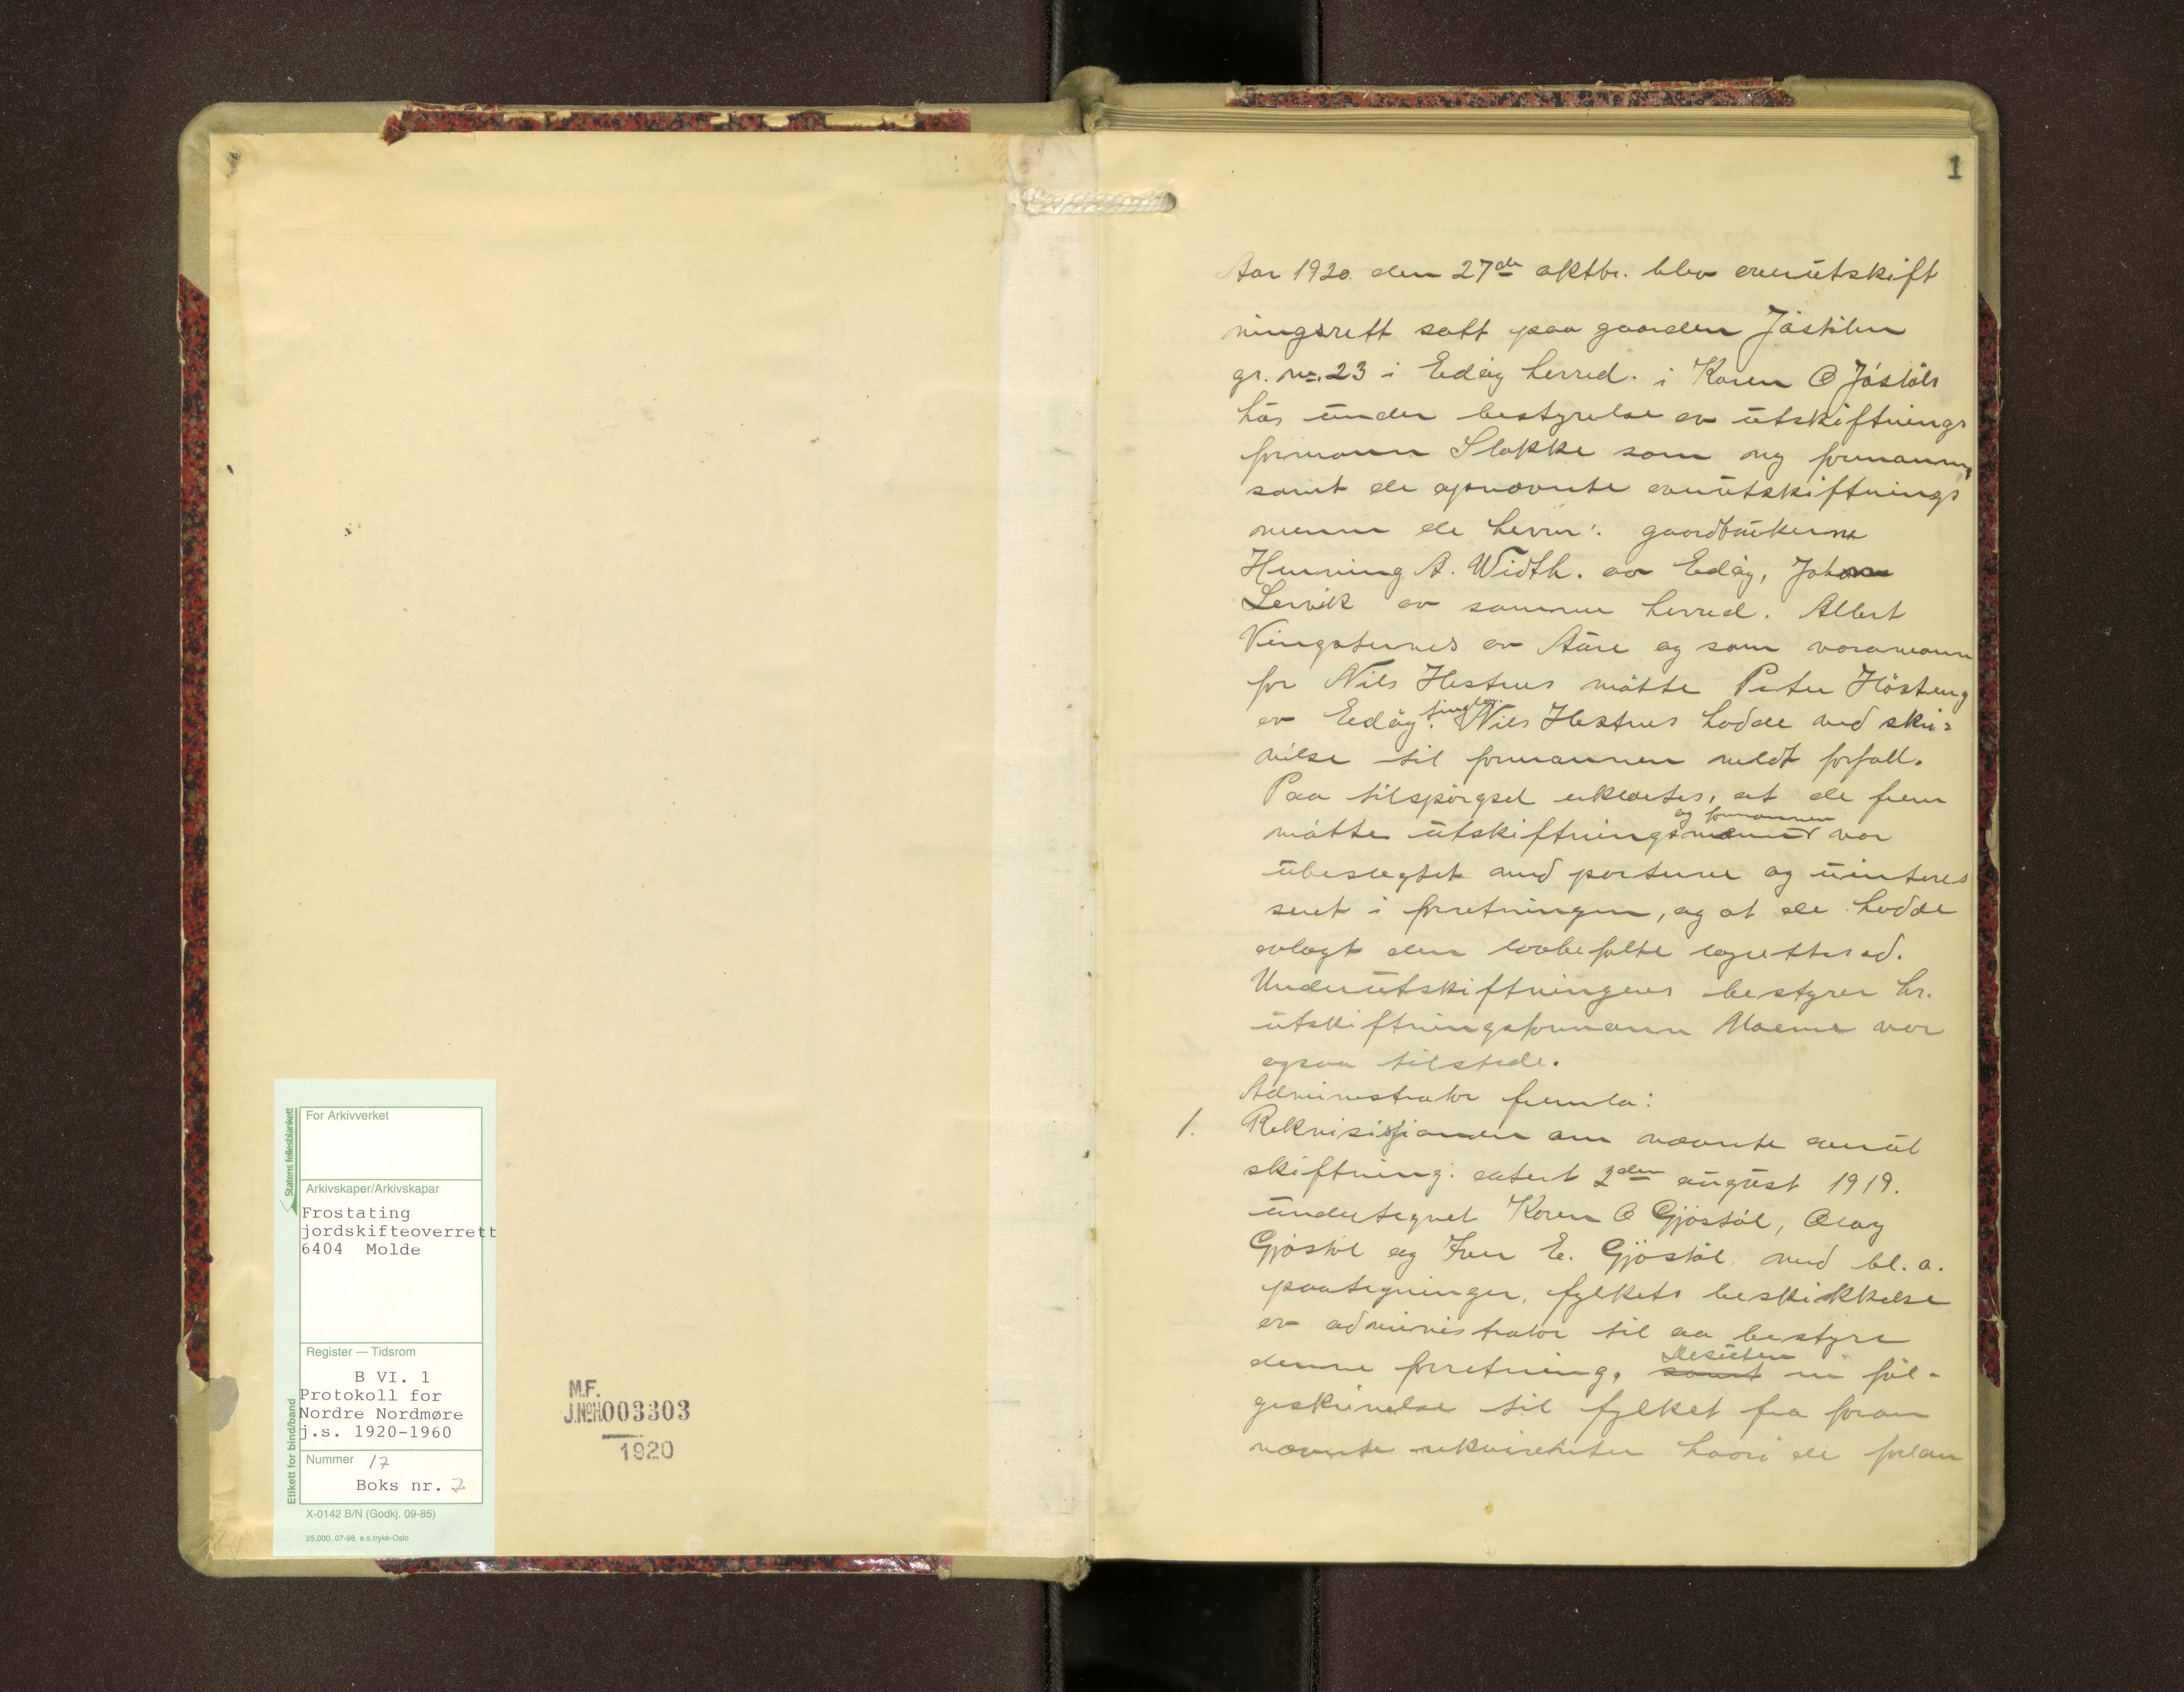 For Arkivverket
Statens fellesblankett
Arkivskaper/Arkivskapar
Frostating
jordskifteoverrett
6404 Molde
Register — Tidsrom
B VI. 1
Protokoll for
Nordre Nordmøre
j.s. 1920-1960
Nummer 17
Boks nr. 7
Etikett for bind/band
X-0142 B/N (Godkj. 09-85)
25.000. 07-98. e.s.trykk-Oslo
M.F.
J.№H.003303
1920
1
Aar 1920 den 27de oktbr. blev overutskift
ningsrett satt paa gaarden Jøstølen
gr. nr. 23 i Edøy herred. i Karen O Jøstøls
hus under bestyrelse av utskiftnings
formann Slokke som ny formann,
samt de opnævnte overutskiftnings
menn de herrer: gaardbrukerne
Henning A. Width. av Edøy, Johan
Lervik av samme herred. Albert
Vingsternes av Aure og som varamann
for Nils Hestnes møtte Peter Høsteng
av Edøy. Nils Hestnes hadde ved skri=
velse til formannen meldt forfall.
Paa tilspørgsel erklærtes, at de frem
møtte utskiftningsmenn og formannen var
ubeslegtet med parterne og uinteres
sert i forretningen, og at de hadde
avlagt den lovbefalte lagrettesed.
Underutskiftningens bestyrer hr.
utskiftningsformann Moerne var
ogsaa tilstede.
Administrator fremla:
1. Rekvisisjonen om nævnte overut
skiftning: datert 2den august 1919.
undertegnet Karen O Gjøstøl, Olav
Gjøstøl og Iver E. Gjøstøl med bl. a.
paategninger, fylkets beskikkelse
av administrator til aa bestyre
denne forretning. samt Desuten en føl-
geskrivelse til fylket fra foran
nævnte rekvirenter hvori de forlan